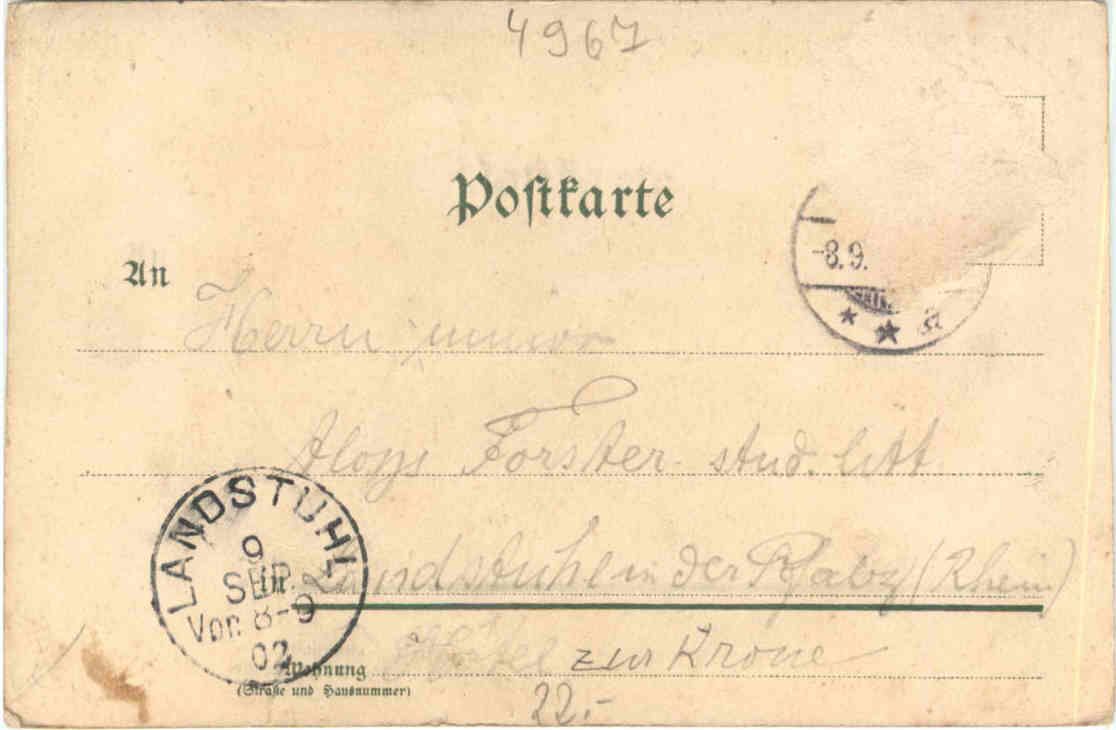 4967
Postkarte
-8.9.
An
Herrn junior
Aloys Forster stud. litt
LANDSTUHL
9
SEP.
Vor. 8-9
02
in Landstuhl in der Pfalz (Rhein)
Wohnung Hôtel zur Krone
(Straße und Hausnummer)
22.-